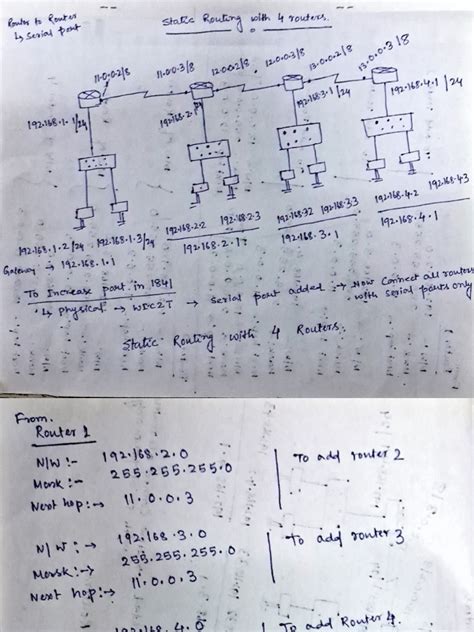 Router to Router
↳ Serial port
Static Routing with 4 routers.
11.0.0.2/8
11.0.0.3/8
12.0.0.2/8
12.0.0.3/8
13.0.0.2/8
13.0.0.3/8
192.168.1.1/24
192.168.2.1
192.168.3.1/24
192.168.4.1/24
192.168.1.2/24 192.168.1.3/24
192.168.2.2 192.168.2.3
192.168.3.2 192.168.3.3
192.168.4.2 192.168.4.3
Gateway → 192.168.1.1
192.168.2.1
192.168.3.1
192.168.4.1
To Increase port in 1841
↳ Physical → WIC2T → Serial port added → Now Connect all routers
with serial ports only
Static Routing with 4 Routers.
From.
Router 1
N/W :- 192.168.2.0
Mask :- 255.255.255.0
Next hop :→ 11.0.0.3
To add router 2
N/W :→ 192.168.3.0
Mask :→ 255.255.255.0
Next hop :→ 11.0.0.3
To add router 3
192.168.4.0
To add Router 4.